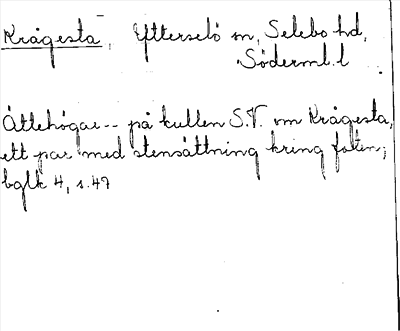 Krågesta, Ytterselö sn, Selebo hd,
Söderml. l
Ättehögar -- på kullen S.V. om Krågesta,
ett par med stensättning kring foten;
bglk 4, s. 49